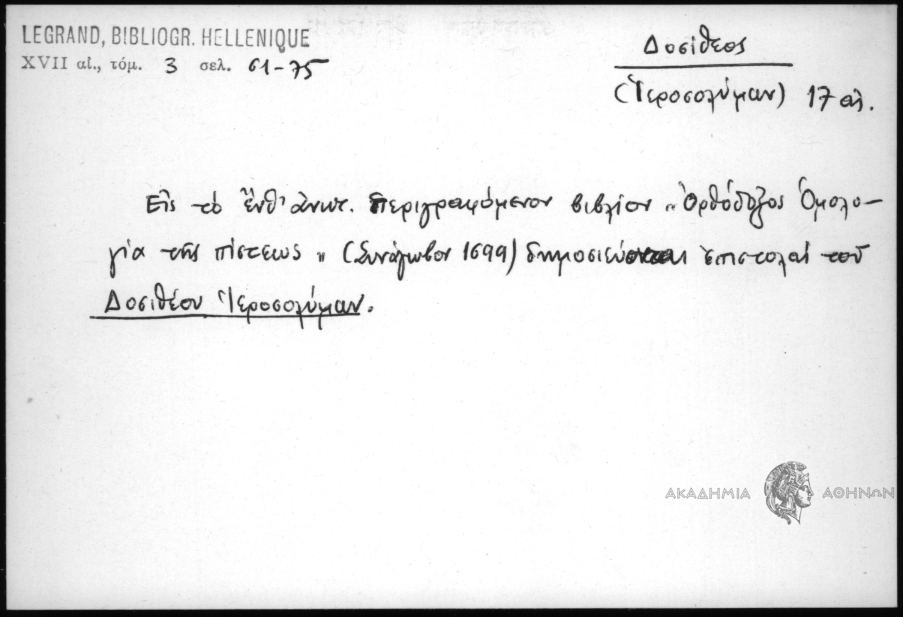 LEGRAND, BIBLIOGR. HELLENIQUE
XVII αἰ., τόμ. 3 σελ. 61-75
Δοσίθεος
(Ἱεροσολύμων) 17 αἰ.
Εἰς τὸ ἔνθ' ἀνωτ. περιγραφόμενον βιβλίον „Ὀρθόδοξος Ὁμολο-
γία τῆς πίστεως" (Συνάγωβον 1699) δημοσιεύονται ἐπιστολαὶ τοῦ
Δοσιθέου Ἱεροσολύμων.
ΑΚΑΔΗΜΙΑ ΑΘΗΝΩΝ